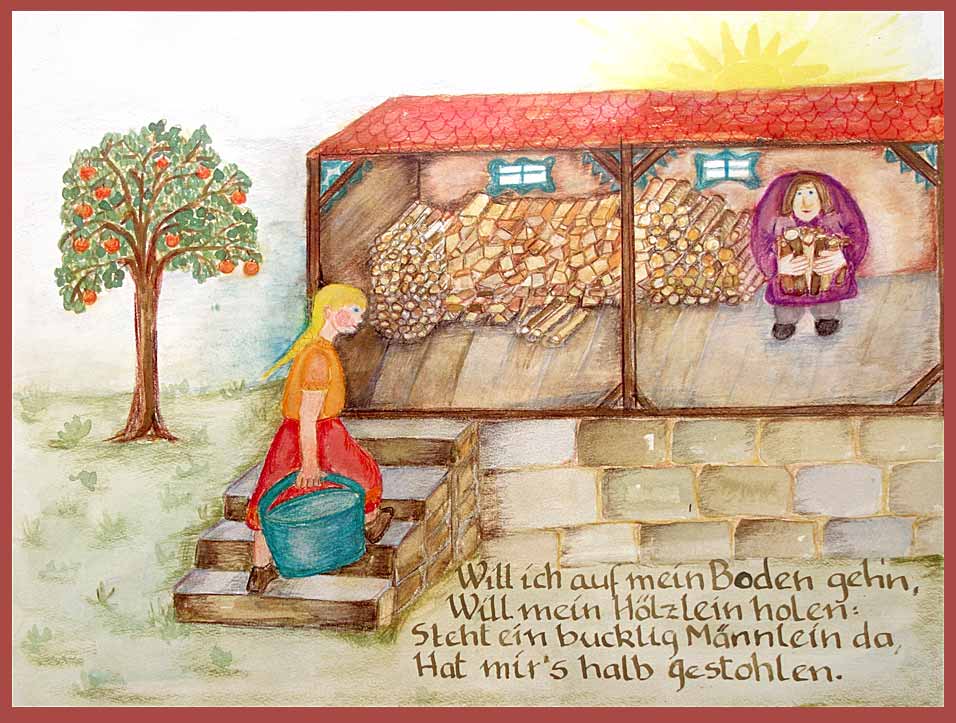 Will ich auf mein Boden geh'n,
Will mein Hölzlein holen:
Steht ein bucklig Männlein da,
Hat mir's halb gestohlen.